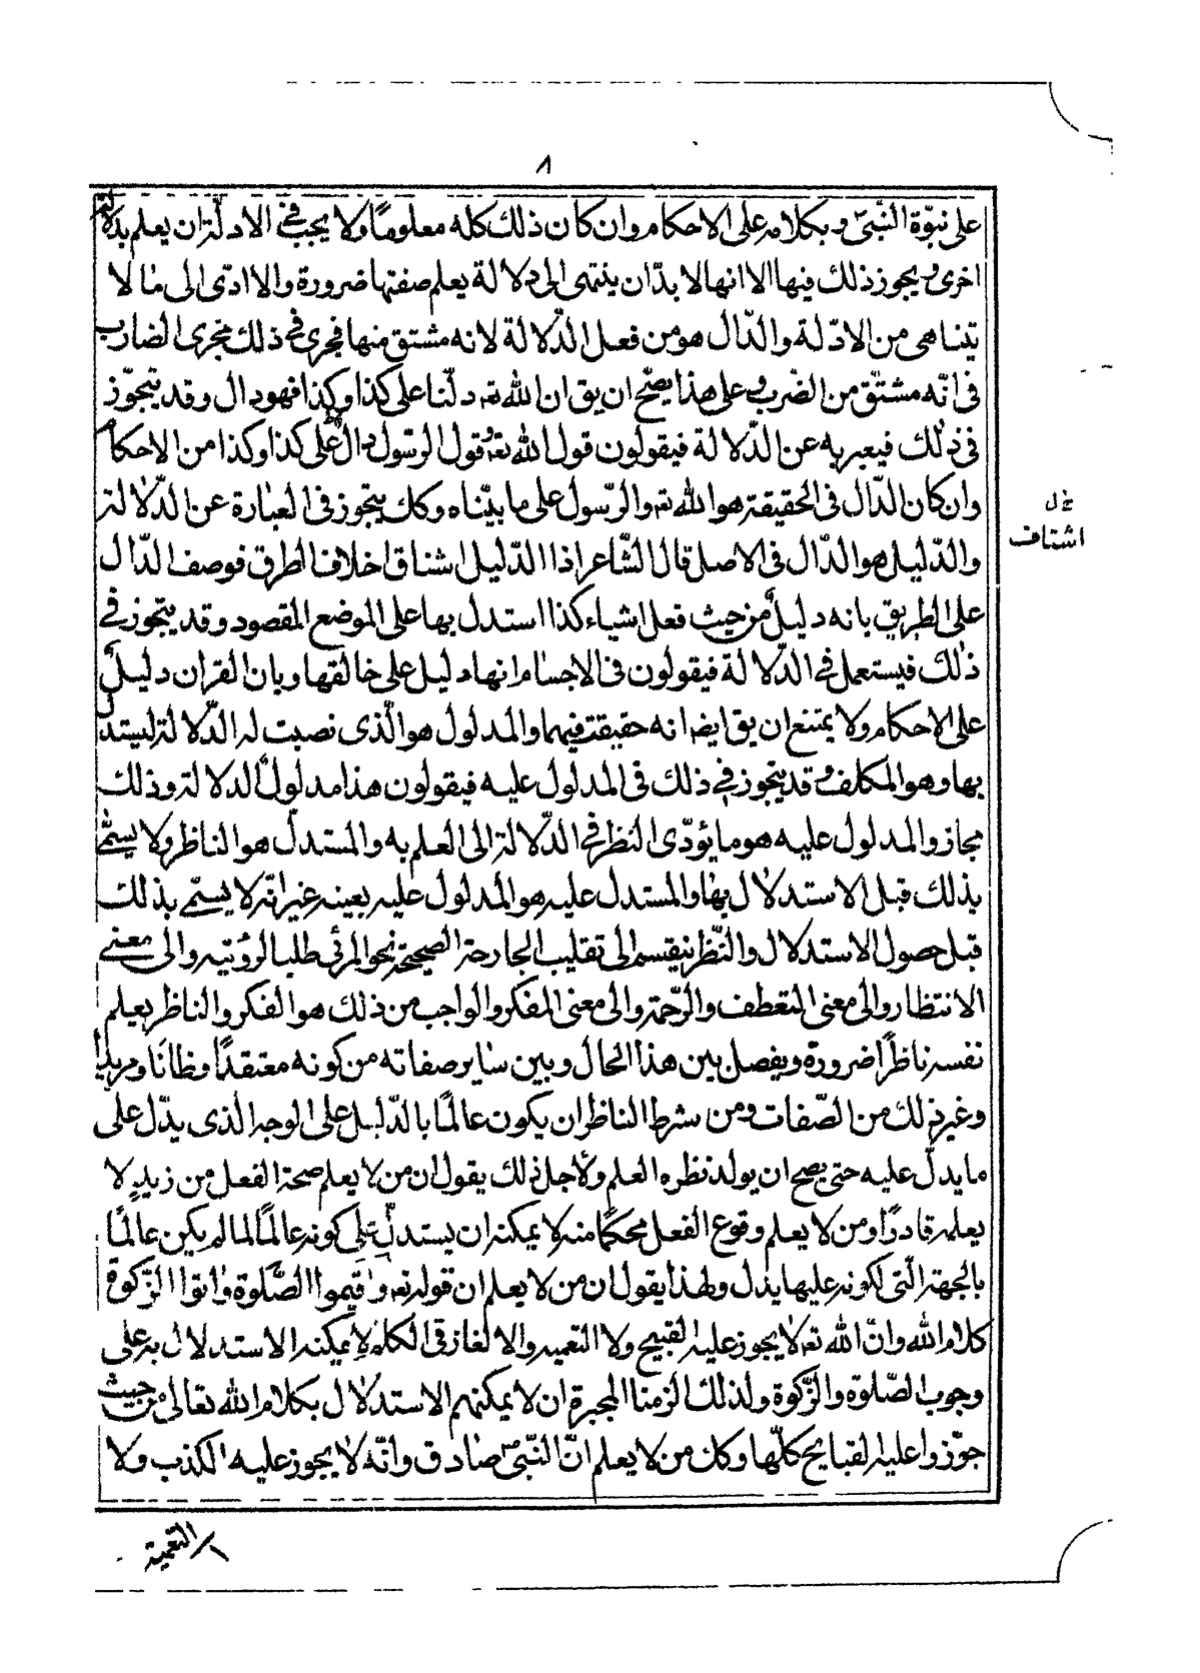 ٨
على نبوّة النّبىّ و بكلامه على الاحكام وان كان ذلك كله معلومًا ولا يجب فى الادلّة ان يعلم بدلالة
اخرى و يجوز ذلك فيها الا انها لا بدّ ان ينتهى الى دلالة يعلم صفتها ضرورة والا ادّى الى ما لا
يتناهى من الادّلة والدّال هو من فعل الدّلالة لانه مشتق منها فجرى فى ذلك مجرى الضارب
فى انّه مشتقّ من الضرب و على هذا يصّح ان يق ان الله تع دلّنا على كذا وكذا فهو دال وقد يتجوّز
فى ذلك فيعبر به عن الدّلالة فيقولون قول الله تع و قول الرسول دالّ على كذا وكذا من الاحكام
وان كان الدّال فى الحقيقة هو الله تع والرّسول على ما بيّناه وكك يتجوز فى العبارة عن الدّلالة
خ ل
اشتاف
والدّليل هو الدّال فى الاصل قال الشّاعر اذا الدّليل اشناق اخلاف الطرق فوصف الدّال
على الطريق بانه دليلٌ من حيث فعل اشياء كذا استدل بها على الموضع المقصود وقد يتجوز فى
ذلك فيستعمل فى الدّلالة فيقولون فى الاجسام انها دليل على خالقها وبان القران دليلٌ
على الاحكام ولا يمتنع ان يق ايضا انه حقيقة فيهما والمدلول هو الّذى نصبت له الدّلالة ليستدل
بها وهو المكلف وقد يتجوز فى ذلك فى المدلول عليه فيقولون هذا مدلولُ الدلالة وذلك
مجاز والمدلول عليه هو ما يؤدّى النظر فى الدّلالة الى العلم به والمستدلّ هو الناظر ولا يسمّى
بذلك قبل الاستدلال بها والمستدل عليه هو المدلول عليه بعينه غير انّه لا يسمّى بذلك
قبل حصول الاستدلال والنّظر ينقسم الى تقليب الجارحة الصحيحة نحو المرئى طلبا لرؤيته والى معنى
الانتظار والى معنى التعطف والرّحمة والى معنى الفكر والواجب من ذلك هو الفكر والناظر يعلم
نفسه ناظرًا ضرورة ويفصل بين هذا الحال وبين ساير صفاته من كونه معتقدًا وظانًا ومريدا
وغير ذلك من الصّفات ومن شرط الناظر ان يكون عالمًا بالدّليل على الوجه الذى يدّل على
ما يدلّ عليه حتى يصح ان يولد نظره العلم ولاجل ذلك يقول ان من لا يعلم صحة الفعل من زيدٍ لا
يعلمه قادرًا ومن لا يعلم وقوع الفعل محكمًا منه لا يمكنه ان يستدلّ على كونه عالمًا لما لم يكن عالمًا
بالجهة الّتى لكونه عليها يدل ولهذا يقول ان من لا يعلم ان قوله تع واقيموا الصّلوة واتوا الزّكوة
كلام الله وانّ الله تع لا يجوز عليه القبيح ولا التعميه والالغاز فى الكلام لا يمكنه الاستدلال به على
وجوب الصّلوة والزّكوة ولذلك الزمنا المجبرة ان لا يمكنهم الاستدلال بكلام الله تعالى من حيث
جوّزوا عليه القبايح كلّها وكك من لا يعلم انّ النّبىّ ص صادق وانّه لا يجوز عليه الكذب ولا
التعمية